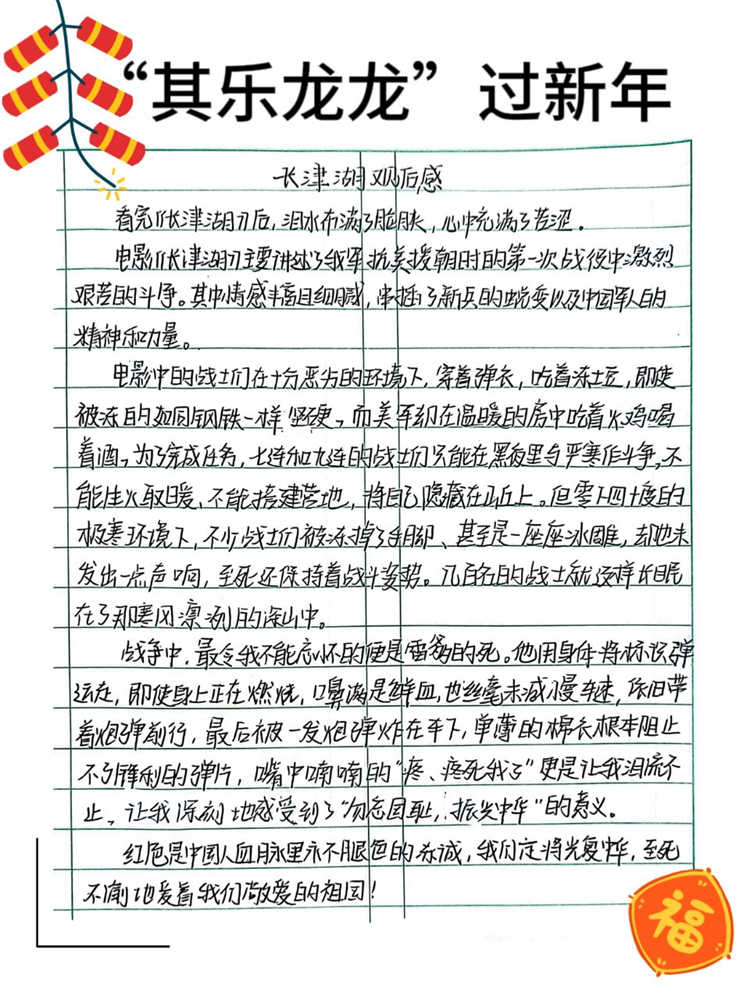 “其乐龙龙”过新年
长津湖观后感
看完《长津湖》后，泪水布满了脸庞，心中充满了苦涩。
电影《长津湖》主要讲述了我军抗美援朝时的第一次战役中激烈
艰苦的斗争。其中情感丰富且细腻，串插了新兵的蜕变以及中国军人的
精神和力量。
电影中的战士们在十分恶劣的环境下，穿着弹衣，吃着冻土豆，即使
被冻的如同钢铁一样坚硬，而美军却在温暖的房中吃着火鸡喝
着酒，为了完成任务，七连和九连的战士们只能在黑夜里与严寒作斗争，不
能生火取暖、不能搭建营地，将自己隐藏在山丘上。但零下四十度的
极寒环境下，不少战士们被冻掉了手脚、甚至是一座座冰雕，却也未
发出一点声响，至死还保持着战斗姿势。几百名的战士就这样长眠
在了那寒风凛冽的深山中。
战争中，最令我不能忘怀的便是雷爹的死。他用身体将标识弹
运走，即使身上正在燃烧，口鼻满是鲜血，也丝毫未减慢车速，依旧带
着炮弹前行，最后被一发炮弹炸在车下，单薄的棉衣根本阻止
不了锋利的弹片，嘴中喃喃的“疼、疼死我了”更是让我泪流不
止、让我深刻地感受到了“勿忘国耻，振兴中华”的意义。
红色是中国人血脉里永不褪色的赤诚，我们定将光复中华，至死
不渝地爱着我们敬爱的祖国！
福